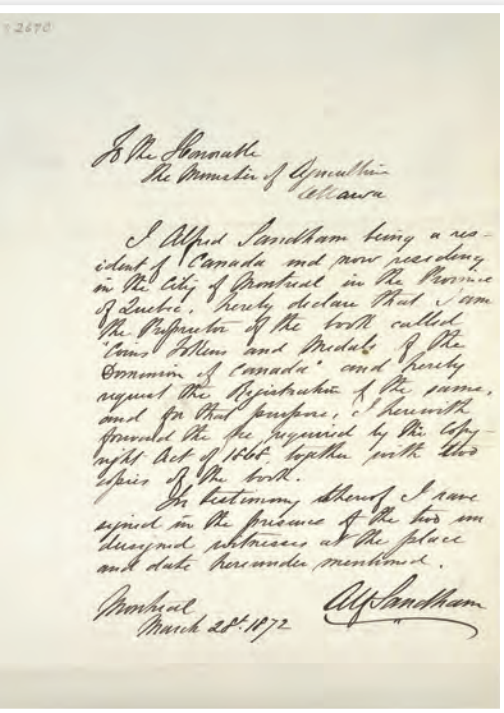 2670
To The Honorable
The Minister of Agriculture
Ottawa
I Alfred Sandham being a res-
ident of Canada and now residing
in the City of Montreal in the Province
of Quebec, hereby declare that I am
the Proprietor of the book called
"Coins Tokens and Medals of the
Dominion of Canada" and hereby
request the Registration of the same,
and for that purpose, I herewith
forward the fee required by the Copy-
right Act of 1868 together with two
copies of the book.
In testimony thereof I have
signed in the presence of the two un
dersigned witnesses at the place
and date hereunder mentioned.
Montreal
March 28th 1872
Alf Sandham